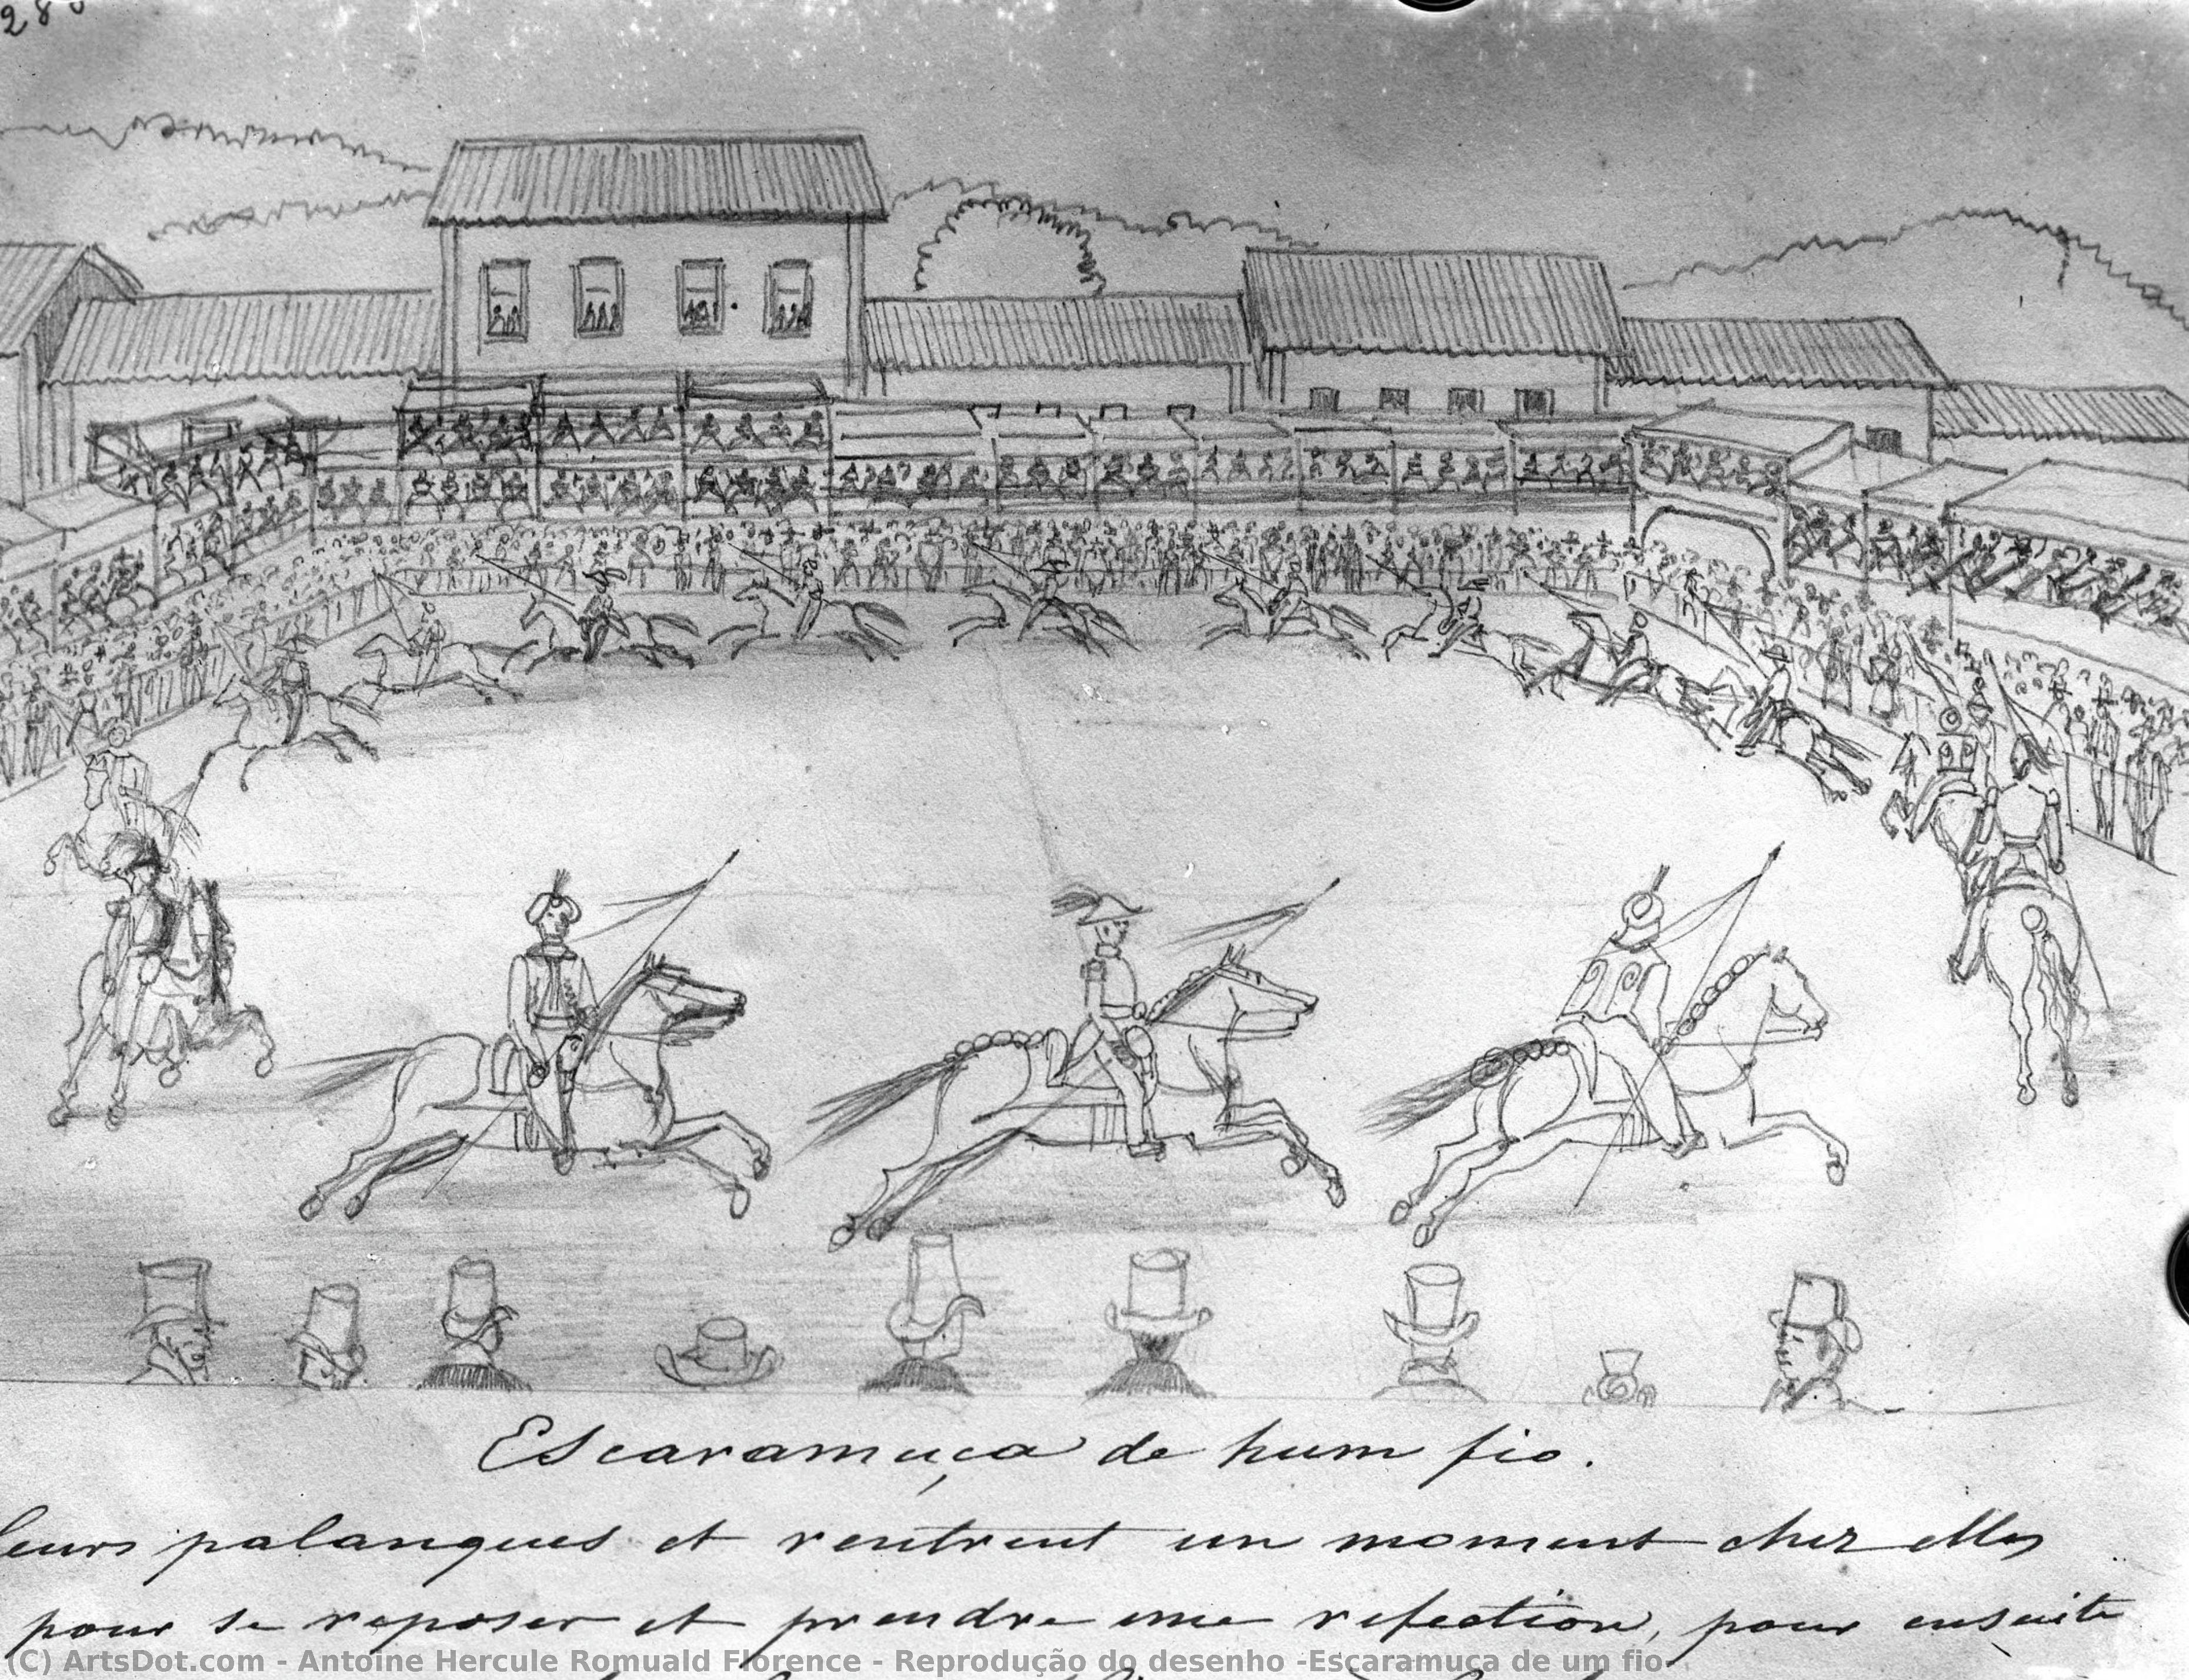 28
Escaramuça de hum fio.
leurs palanques et rentrent un moment chez elles
pour se reposer et prendre une refection, pour ensuite
(C) ArtsDot.com - Antoine Hercule Romuald Florence - Reprodução do desenho -Escaramuça de um fio-